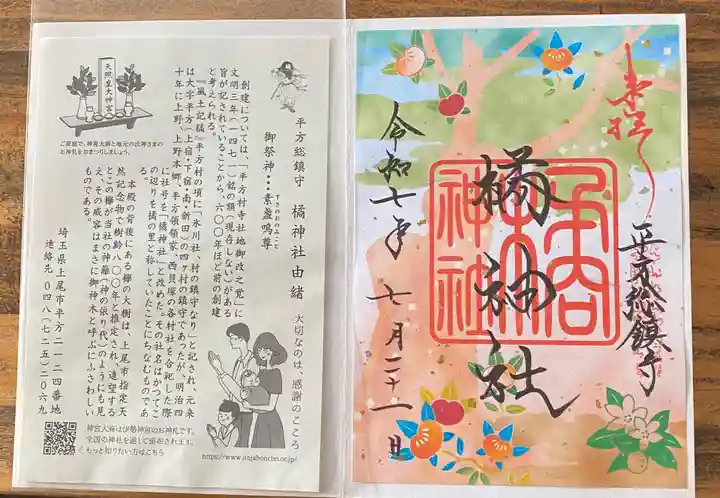 奉拝
平方総鎮守
橘神社
令和七年七月二十一日
天照皇大神宮
ご家庭で、神宮大麻と地元の氏神さまの
お神札をおまつりしましょう。
平方総鎮守 橘神社由緒
御祭神・・・素盞嗚尊
すさのおのみこと
創建については、「平方村寺社地御改之覚」に
文明三年(一四七一)銘の額(現存しない)がある
旨が記されていることから、六〇〇年ほど前の創建
と考えられる。
『風土記稿』平方村の項に「氷川社、村の鎮守なり」と記され、元来
は大字平方(上宿・下宿・南・新田)の四ヶ村の鎮守であったが、明治四
十年に上野、上野本郷、平方領領家、西貝塚の各村社を合祀した際
に社号を「橘神社」と改めた。その社名はかつてこ
の辺りを橘の里と称していたことにちなむものであ
る。
本殿の背後にある欅の大樹は、上尾市指定天
然記念物で樹齢八〇〇年と推定され、遠望する
とこの欅が当社の神籬(神の依り代)のようにも見
え、その威容はまさに御神木と呼ぶにふさわしい
ものである。
埼玉県上尾市平方二一二四番地
連絡先 〇四八(七二五)二〇六九
大切なのは、感謝のこころ
神宮大麻は伊勢神宮のお神札です。
全国の神社を通して頒布されます。
くもっと知りたい方はこちら
https://www.jinjahoncho.or.jp/